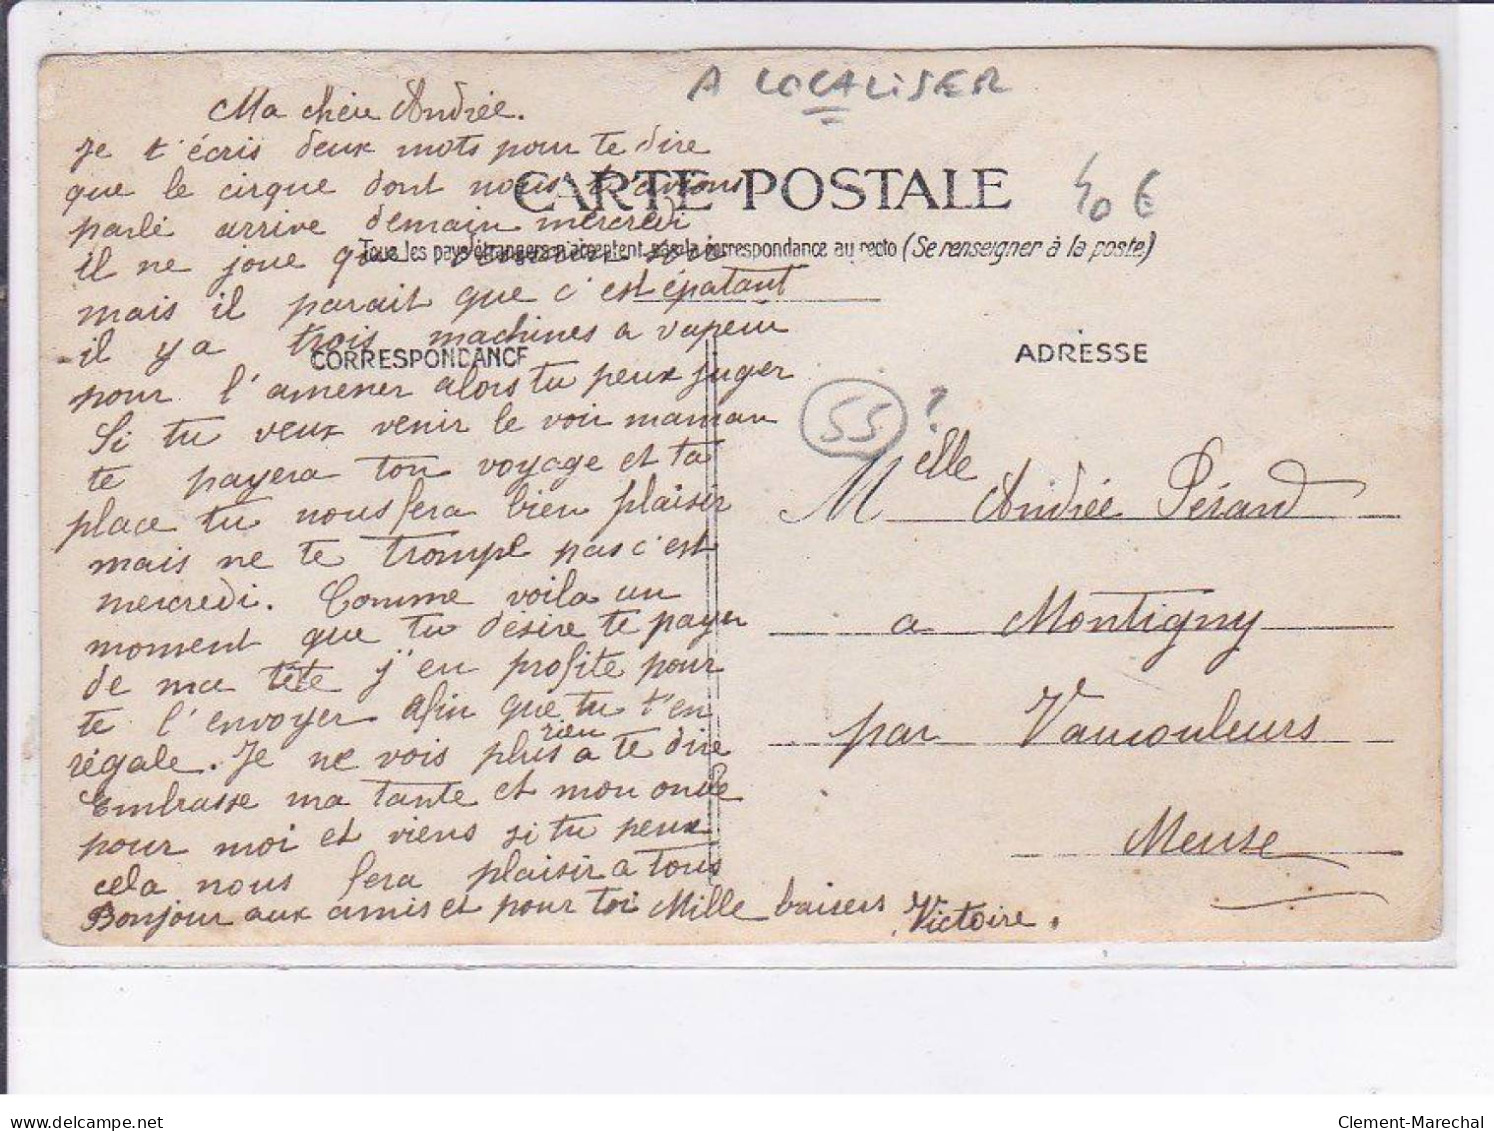 A LOCALISER
CARTE POSTALE
40 €
Tous les pays étrangers n'acceptent pas la correspondance au recto (Se renseigner à la poste)
CORRESPONDANCE
ADRESSE
55 ?
Ma chère Andrée.
Je t'écris deux mots pour te dire
que le cirque dont nous t'avions
parlé arrive demain mercredi
il ne joue que demain soir
mais il parait que c'est épatant
il y a trois machines a vapeur
pour l'amener alors tu peux juger
Si tu veux venir le voir maman
te payera ton voyage et ta
place tu nous fera bien plaisir
mais ne te trompe pas c'est
mercredi. Comme voila un
moment que tu désire te payer
de ma tête j'en profite pour
te l'envoyer afin que tu t'en
régale. Je ne vois plus rien a te dire
Embrasse ma tante et mon oncle
pour moi et viens si tu peux
cela nous fera plaisir a tous
Bonjour aux amis et pour toi Mille baisers Victoire.
Melle Andrée Pérard
a Montigny
par Vaucouleurs
Meuse
delcampe.net
Clement-Marechal